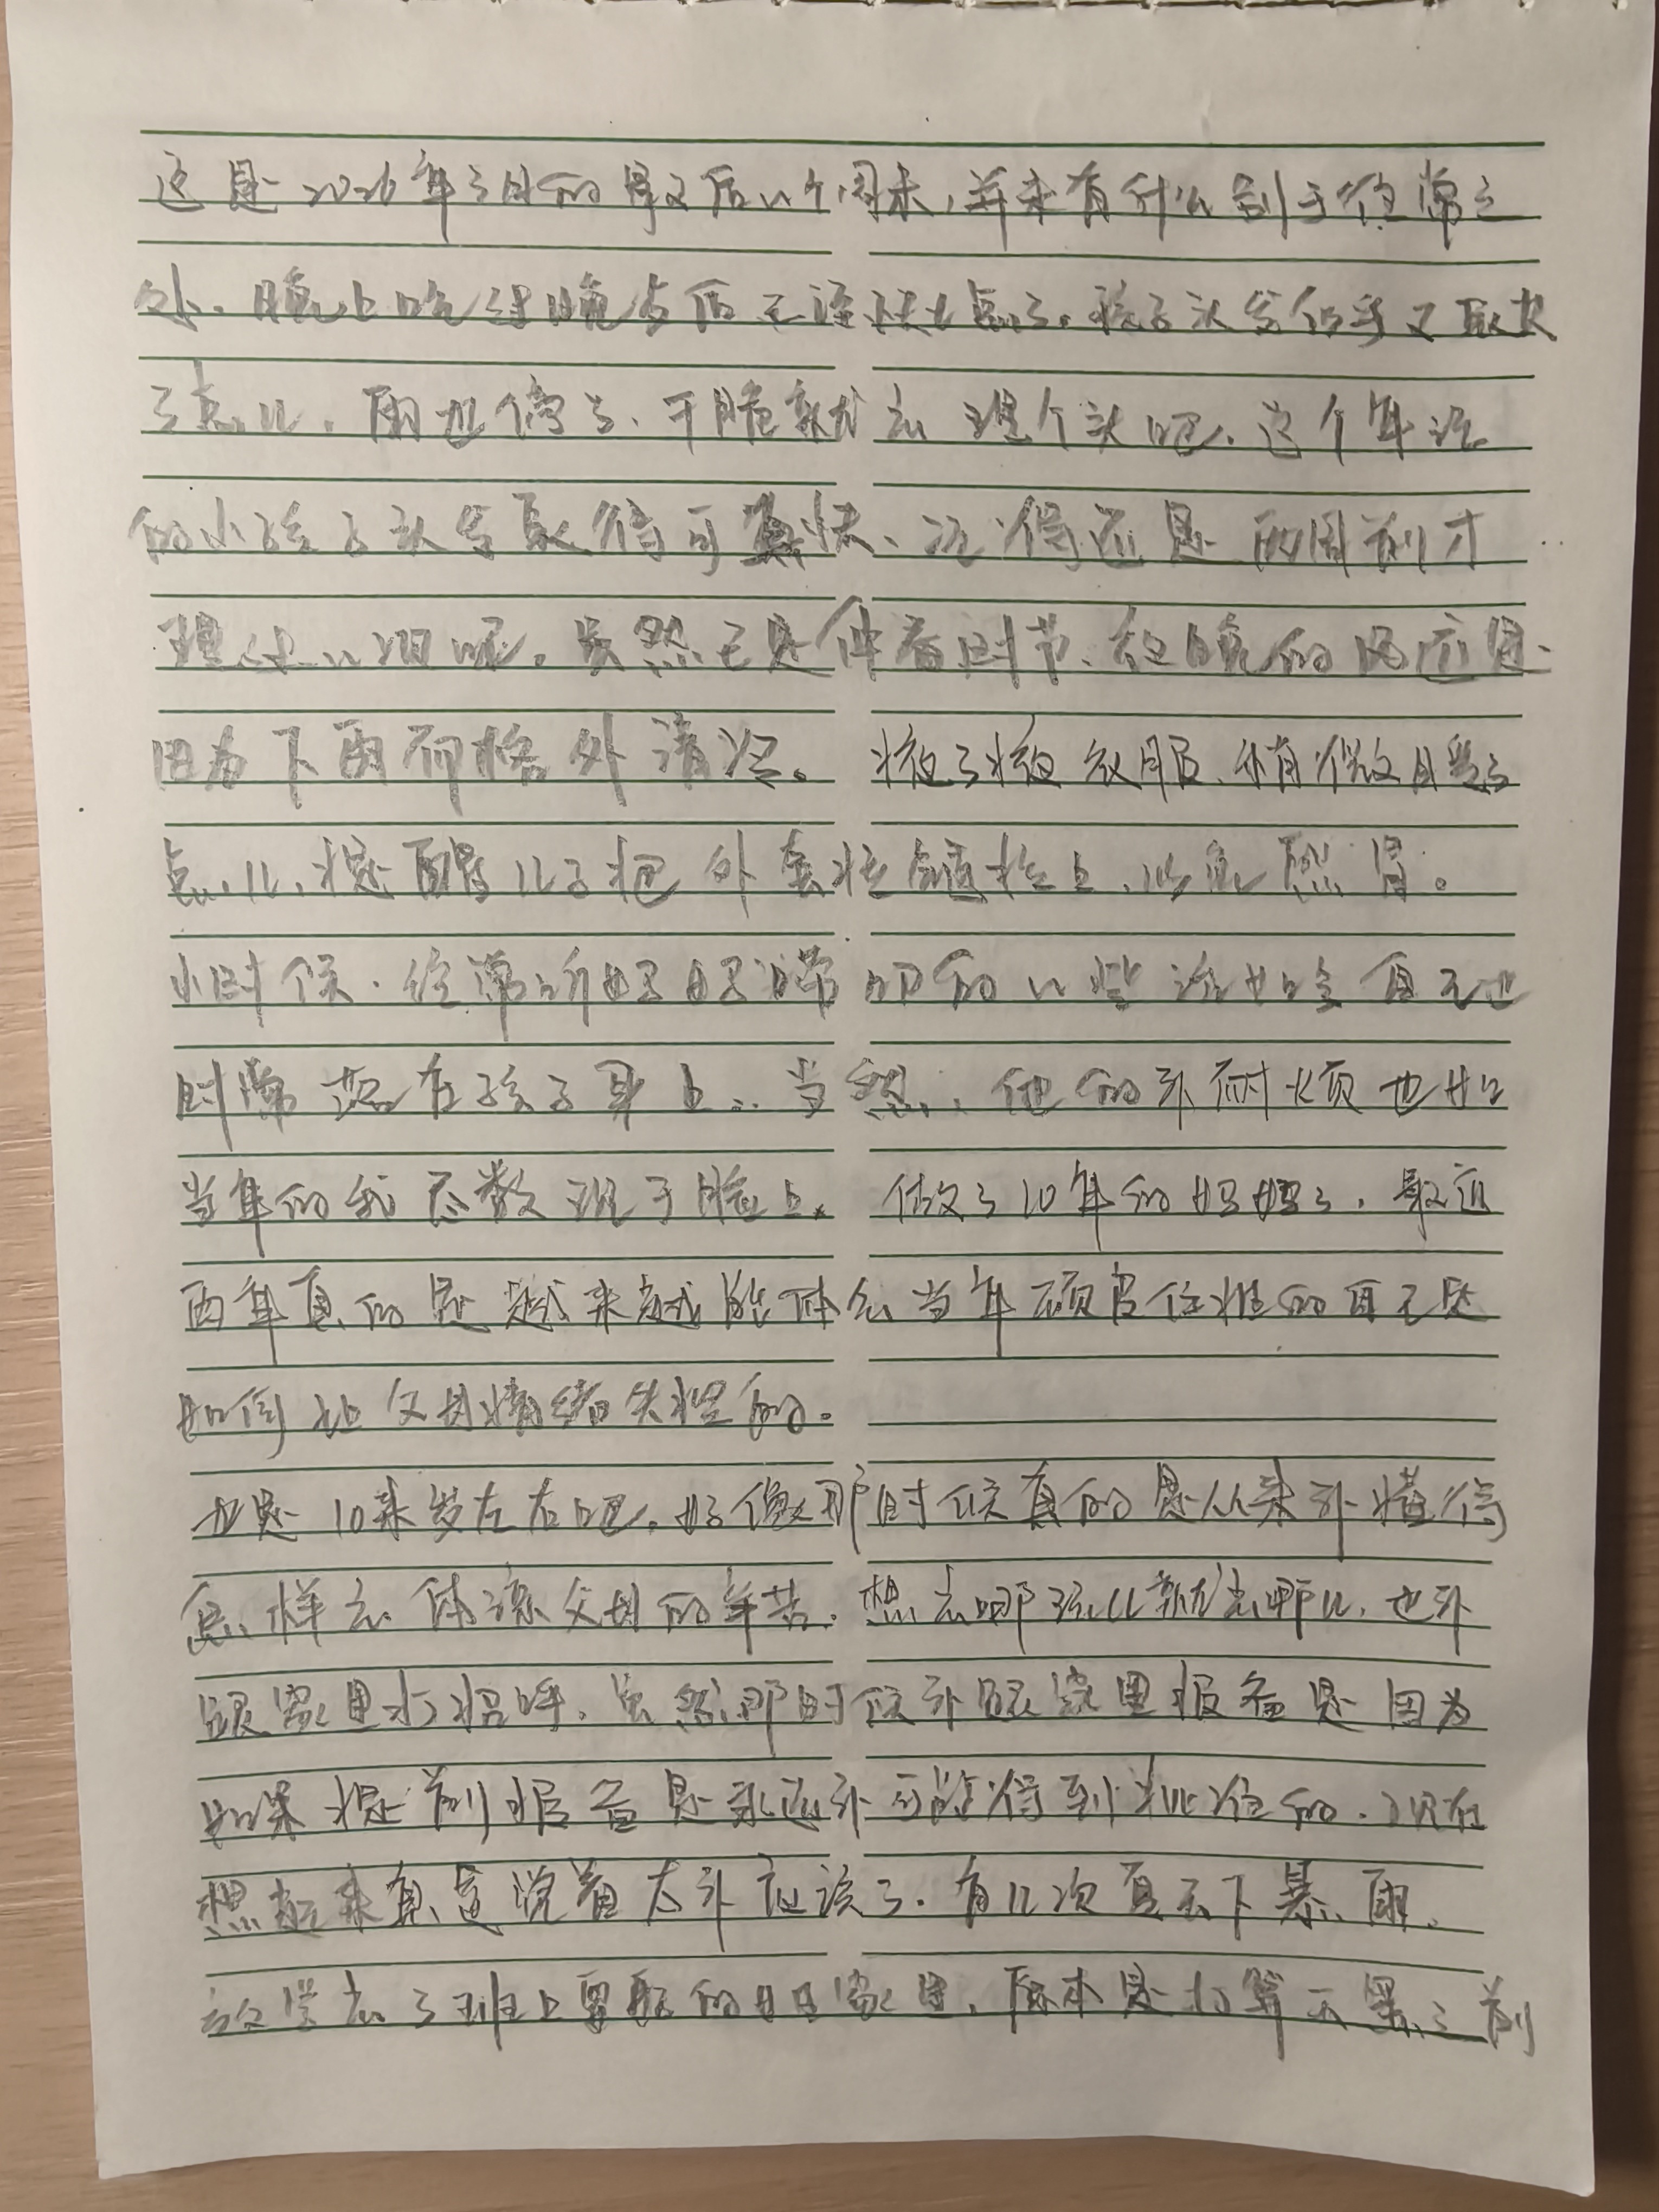 这是2026年3月的最后一个周末，并未有什么别于往常之
外。晚上吃过晚与后已连快七点了。孩子头发似乎又长
了点儿，雨也停了、干脆就去理个头吧。这个年龄
的小孩子头发长得可真快、记得还是两周前才
理过一次呢。虽然已是仲春时节、夜晚的风还是
因为下雨而格外清冷。拢了拢衣服，稍微暖了
点儿，提醒儿子把外套拉链拉上，以免感冒。
小时候，经常听妈妈唠叨的一些话如今自己也
时常落在孩子身上。当然，他的不耐烦也如
当年的我悉数现于脸上。做了10年的妈妈了，最近
两年真的是越来越能体会当年顽皮任性的自己是
如何让父母情绪失控的。
也是10来岁左右吧，好像那时候真的是从来不懂得
怎样去体谅父母的辛苦，想去哪玩儿就去哪儿，也不
跟家里打招呼，虽然那时候不跟家里报备是因为
如果提前报备是永远不可能得到批准的，现在
想起来真是说着太不应该了。有几次夏天下暴雨，
放学去了班上要好的同学家里，原本是打算天黑之前